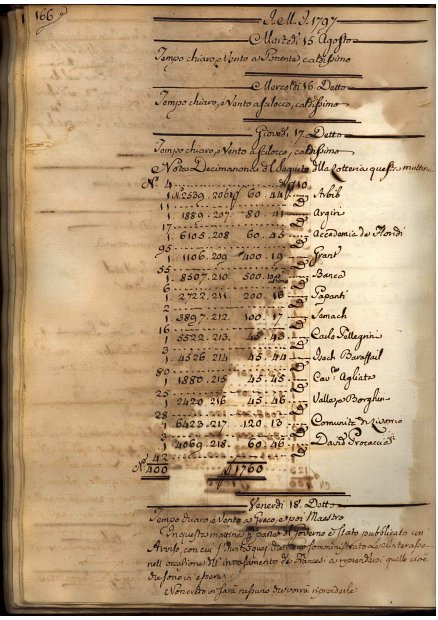 166
A. M. d. 1797
Martedì 15 Agosto
Tempo chiaro, e Vento a Ponente caldissimo
Mercoldì 16 Detto
Tempo chiaro, e Vento a Scilocco, caldissimo
Giovedì 17 Detto
Tempo chiaro, e Vento a Scilocco, caldissimo
Nota Decimanona del Seguito della Lotteria questa mattina
N. 4
1 2539. 206 60. 44 Arbib
11
1. 1889. 207. 80. 41 Argin
17
1. 6105. 208 60. 43 Accademia de Floridi
95
1. 1106. 209 400. 19 Grant
5
1. 8507. 210 500. Banca
6
1. 2722. 211. 200. 16 Papanti
2
1. 3897. 212 100. 17 Semach
16
1. 5522. 213. 45. 43 Carlo Pellegrini
3
1. 4526. 214 45. 44 Isach Baraffael
80
1. 1880. 215 45. 45 Cav. Agliata
25
1. 2420. 216 45. 46 Valle, e Borghini
28
1. 6423. 217 120. 13 Comunità di Livorno
3
1. 4069. 218 60. 46 David Procaccia
42
N. 400 1760
Venerdì 18. Detto
Tempo chiaro, e Vento a Greco, e poi Maestro
In questa mattina p parte del Governo è stato pubblicato un
Avviso, con cui somministrato
nell occasione dell' de Francesi a riprendersi quelle cose
che sono in essere
Non resta di fare nessuno riprenderle